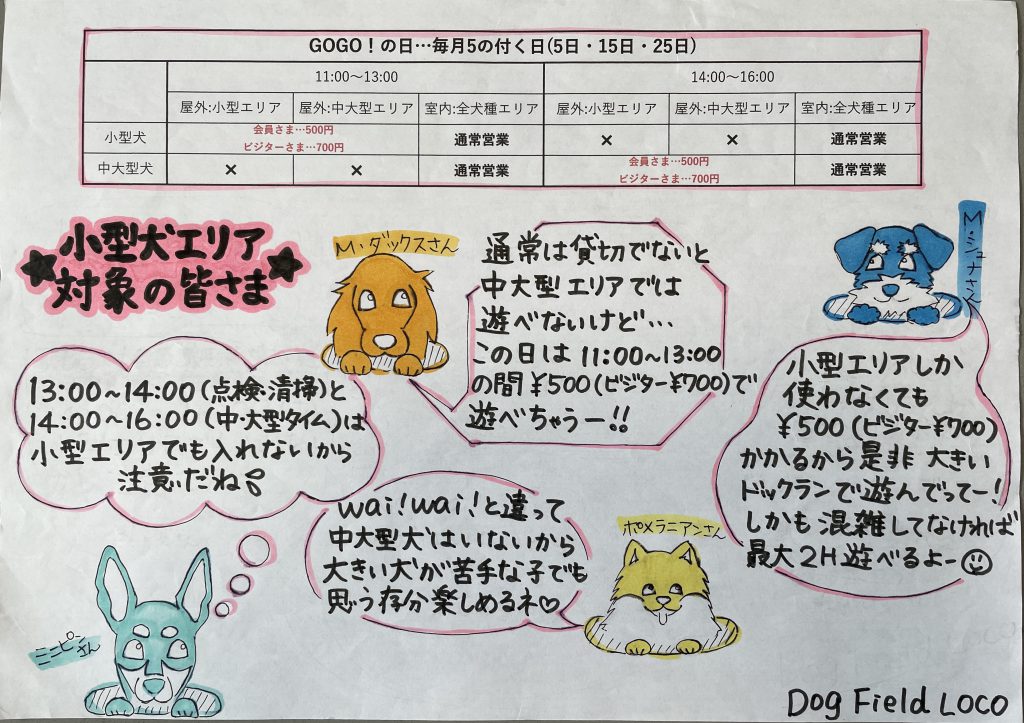 GOGO！の日…毎月5の付く日(5日・15日・25日)
11:00～13:00 14:00～16:00
屋外:小型エリア 屋外:中大型エリア 室内:全犬種エリア 屋外:小型エリア 屋外:中大型エリア 室内:全犬種エリア
小型犬 会員さま…500円 ビジターさま…700円 通常営業 × × 通常営業
中大型犬 × × 通常営業 会員さま…500円 ビジターさま…700円 通常営業
★小型犬エリア
対象の皆さま★
M・ダックスさん
通常は貸切でないと
中大型エリアでは
遊べないけど…
この日は11:00~13:00
の間¥500(ビジター¥700)で
遊べちゃうー!!
M・シュナさん
小型エリアしか
使わなくても
¥500(ビジター¥700)
かかるから是非大きい
ドックランで遊んでってー!
しかも混雑してなければ
最大2H遊べるよー☺
13:00~14:00(点検・清掃)と
14:00~16:00(中・大型タイム)は
小型エリアでも入れないから
注意だね
ミニピンさん
wai!wai!と違って
中大型犬はいないから
大きい犬が苦手な子でも
思う存分楽しめるネ♡
ポメラニアンさん
Dog Field LOCO